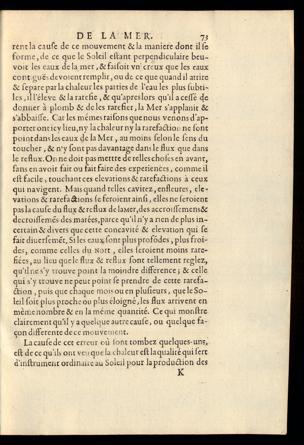 DE LA MER. 73
rent la cause de ce mouvement & la maniere dont il se
forme, de ce que le Soleil estant perpendiculaire beu-
voit les eaux de la mer, & faisoit vn creux que les eaux
contiguës devoient remplir, ou de ce que quand il attire
& separe par la chaleur les parties de l'eau les plus subti-
les, il l'éleve & la rarefie, & qu'apres lors qu'il a cessé de
donner à plomb & de les rarefier, la Mer s'applanit &
s'abbaisse. Car les mémes raisons que nous venons d'ap-
porter ont icy lieu, ny la chaleur ny la rarefactiõ ne sont
point dans les eaux de la Mer, au moins selon le sens du
toucher, & n'y sont pas davantage dans le flux que dans
le reflux. On ne doit pas mettre de telles choses en avant,
sans en avoir fait ou fait faire des experiẽces, comme il
est facile, touchant ces elevations & rarefactions à ceux
qui navigent. Mais quand telles cavitez, enfleures, ele-
vations & rarefactiõs se feroient ainsi, elles ne seroient
pas la cause du flux & reflux de la mer, des accroissemẽs &
decroissemẽs des marées, parce qu'il n'y a rien de plus in-
certain & divers que cette concavité & elevation qui se
fait diversemẽt, Si les eaux sont plus profõdes, plus froi-
des, comme celles du Nort, elles seroient moins rare-
fiées, au lieu que le flux & reflux sont tellement reglez,
qu'il ne s'y trouve point la moindre difference; & celle
qui s'y trouve ne peut point se prendre de cette rarefa-
ction, puis que chaque mois ou en plusieurs, que le So-
leil soit plus proche ou plus éloigné, les flux arrivent en
méme nombre & en la méme quantité. Ce qui monstre
clairement qu'il y a quelque autre cause, ou quelque fa-
çon differente de ce mouvement.
La cause de cet erreur où sont tombez quelques-uns,
est de ce qu'ils ont veu que la chaleur est la qualité qui sert
d'instrument ordinaire au Soleil pour la production des
K